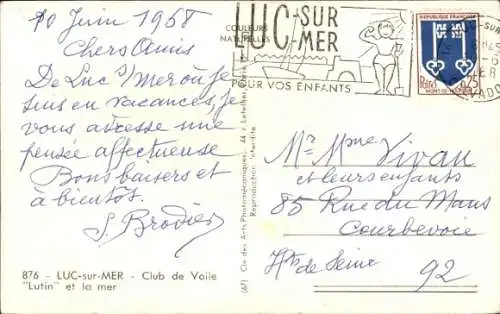 10 Juin 1968
Chers Amis
De Luc s/ mer où je
suis en vacances, je
vous adresse une
pensée affectueuse
Bons baisers et
à bientôt.
S. Brodier
876 - LUC-sur-MER - Club de Voile
"Lutin" et la mer
COULEURS
NATURELLES
(67) Cie des Arts Photomécaniques, 44 r. Letellier,
Reproduction interdite
LUC-SUR
MER
POUR VOS ENFANTS
REPUBLIQUE FRANÇAISE
MONT-DE-MARSAN
Mr Mme Vivan
et leurs enfants
85 Rue du Mans
Courbevoie
Hts de Seine 92